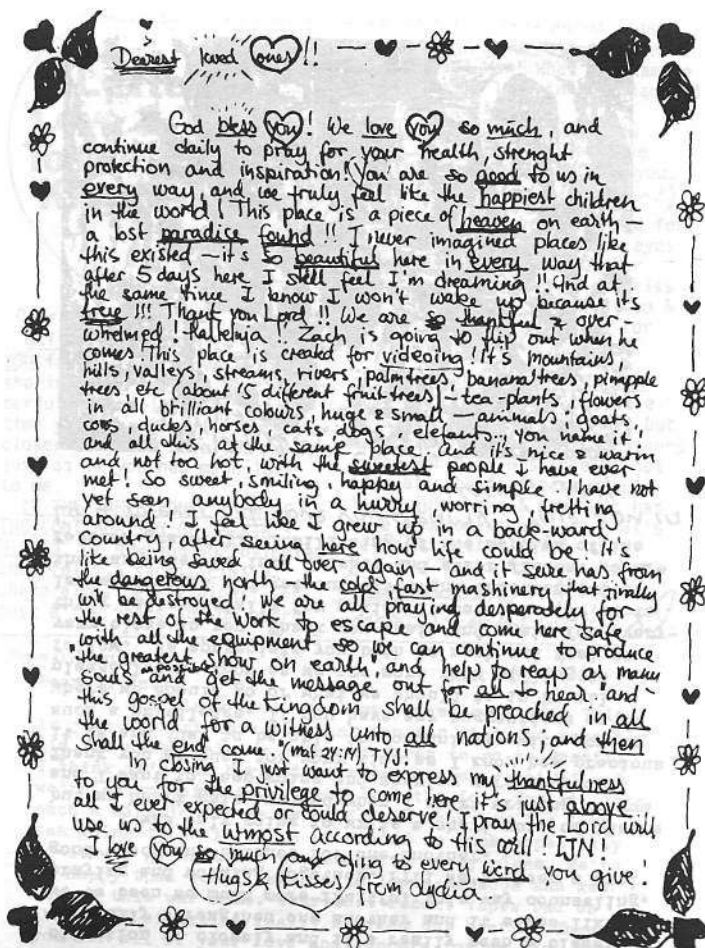 Dearest loved ones!!
God bless you! We love you so much, and
continue daily to pray for your health, strenght
protection and inspiration! You are so good to us in
every way, and we truly feel like the happiest children
in the world! This place is a piece of heaven on earth –
a lost paradise found!! I never imagined places like
this existed – it's so beautiful here in every way that
after 5 days here I still feel I'm dreaming!! And at
the same time I know I won't wake up because its
true!!! Thank you Lord!! We are so thankful & over-
whelmed! Halleluja! Zach is going to flip out when he
comes! This place is created for videoing! It's mountains,
hills, valleys, streams, rivers, palmtrees, banana trees, pinapple
trees, etc (about 15 different fruit trees) – tea-plants, flowers
in all brilliant colours, huge & small – animals: goats,
cows, ducks, horses, cats, dogs, elefants... you name it!
and all this at the same place. And it's nice & warm
and not too hot, with the sweetest people I have ever
met! So sweet, smiling, happy and simple. I have not
yet seen anybody in a hurry, worring, fretting
around! I feel like I grew up in a back-ward
country, after seeing here how life could be! It's
like being saved all over again – and it sure has from
the dangerous north – the cold, fast mashinery that finally
will be destroyed! We are all praying desperately for
the rest of the Work to escape and come here safe
with all the equipment so we can continue to produce
"the greatest show on earth", and help to reap as many
souls as possible and get the message out for all to hear "and
this gospel of the Kingdom shall be preached in all
the world for a witness unto all nations, and then
shall the end come." (Mat 24:14) TYJ!
In closing I just want to express my thankfulness
to you for the privilege to come here, it's just above
all I ever expected or could deserve! I pray the Lord will
use us to the utmost according to His will! IJN!
I love you so much and cling to every word you give!
Hugs & Kisses from Lydia